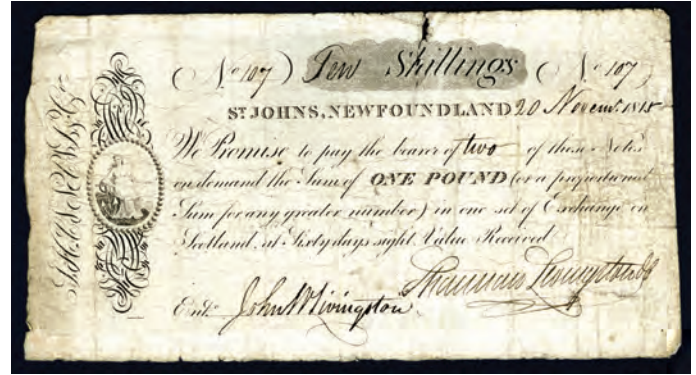 (No 107) Ten Shillings (No 107)
ST JOHNS, NEWFOUNDLAND 20 Novemr. 1815
We Promise to pay the bearer of two of these Notes
on demand the Sum of ONE POUND (or a proportional
Sum for any greater number) in one set of Exchange on
Scotland, at Sixty days sight. Value Received
Shannan Livingston & Co
Entd. John W Livingston.